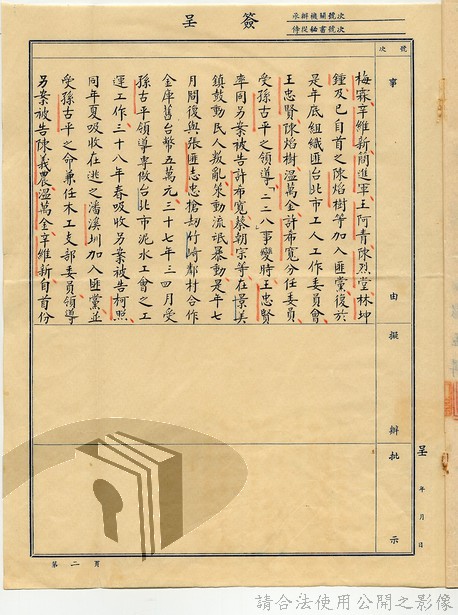 簽呈
承辦機關號次
侍從秘書號次
號次
事由
擬辦
批示
呈
年月日
梅霖辛維新簡進軍王阿青陳烈堂林坤
鍾及已自首之陳焰樹等加入匪黨復於
是年底組織匪台北市工人工作委員會
王忠賢陳焰樹溫萬金計布寬分任委員
受孫古平之領導「二二八」事變時王忠賢
率同另案被告計布寬蔡朝宗等在景美
鎮鼓動民人叛亂策動流氓暴動是年七
月間復與張匪志忠搶刼竹崎鄉村合作
金庫舊台幣五萬元三十七年三四月受
孫古平領導專做台北市泥水工會之工
運工作三十八年春吸收另案被告柯照
同年夏吸收在逃之潘溪圳加入匪黨並
受孫古平之命兼任木工支部委員領導
另案被告陳義農溫萬金辛維新自首份
第二頁
請合法使用公開之影像